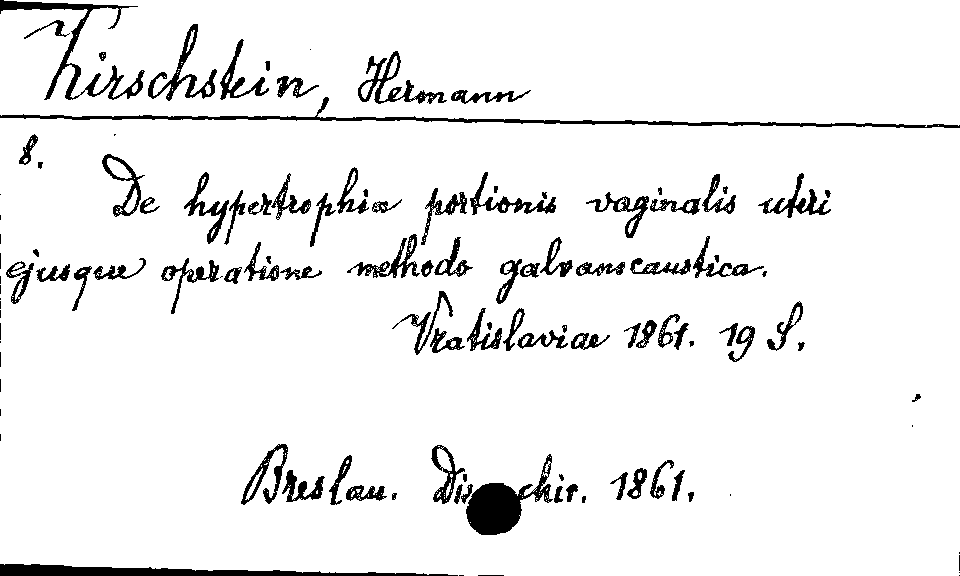 Kirschstein, Hermann
8.
De hypertrophia portionis vaginalis uteri
ejusque operatione methodo galvanocaustica.
Vratislaviae 1861. 19 S.
Breslau. chir. 1861.